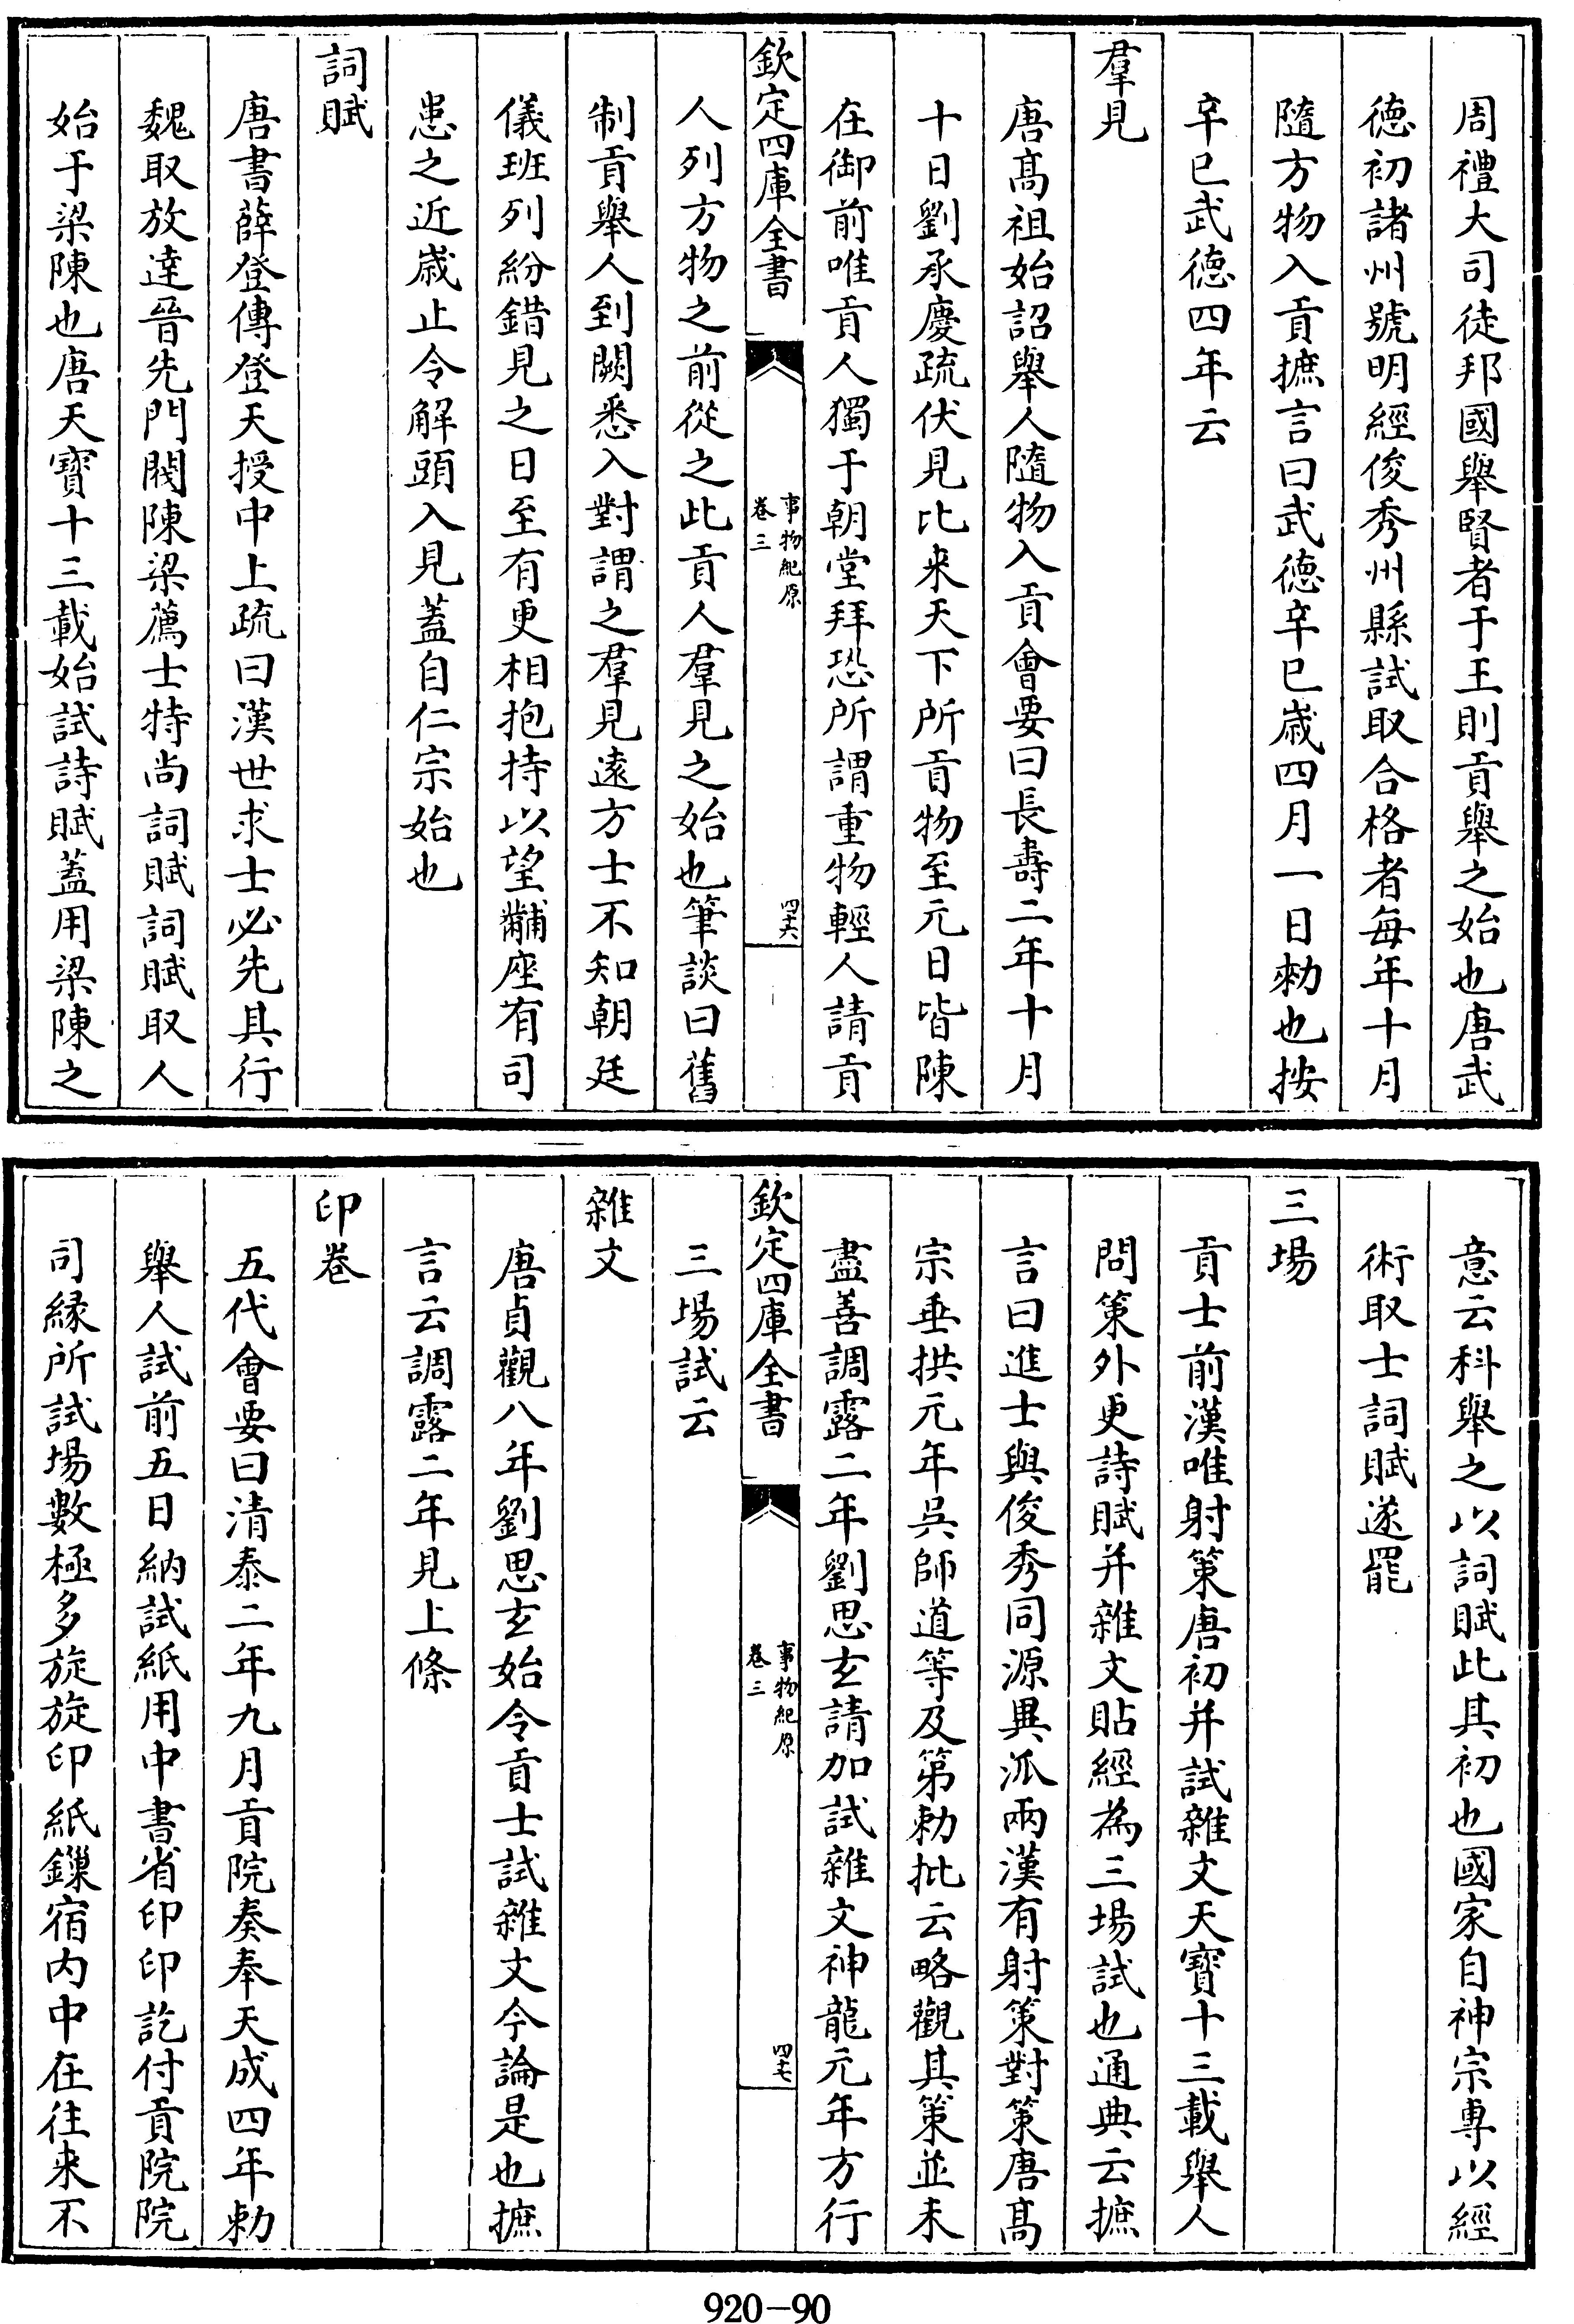 周禮大司徒邦國舉賢者于王則貢舉之始也唐武
德初諸州號明經俊秀州縣試取合格者每年十月
隨方物入貢摭言曰武德辛巳嵗四月一日勑也按
辛巳武德四年云
羣見
唐髙祖始詔舉人隨物入貢㑹要曰長壽二年十月
十日劉承慶疏伏見比来天下所貢物至元日皆陳
在御前唯貢人獨于朝堂拜恐所謂重物輕人請貢
欽定四庫全書
事物紀原
卷三
四十六
人列方物之前從之此貢人羣見之始也筆談曰舊
制貢舉人到闕悉入對謂之羣見遠方士不知朝廷
儀班列紛錯見之日至有更相抱持以望黼座有司
患之近嵗止令解頭入見蓋自仁宗始也
詞賦
唐書薛登傳登天授中上疏曰漢世求士必先其行
魏取放達晉先門閥陳梁薦士特尚詞賦詞賦取人
始于梁陳也唐天寳十三載始試詩賦蓋用梁陳之
意云科舉之以詞賦此其初也國家自神宗専以經
術取士詞賦遂罷
三場
貢士前漢唯射策唐初并試雜文天寳十三載舉人
問策外更詩賦并雜文貼經為三場試也通典云摭
言曰進士與俊秀同源異派兩漢有射策對策唐髙
宗垂拱元年吳師道等及第勅批云略觀其策並未
盡善調露二年劉思玄請加試雜文神龍元年方行
欽定四庫全書
事物紀原
卷三
四十七
三場試云
雜文
唐貞觀八年劉思玄始令貢士試雜文今論是也摭
言云調露二年見上條
印卷
五代會要曰清泰二年九月貢院奏奉天成四年勅
舉人試前五日納試紙用中書省印印訖付貢院院
司縁所試場數極多旋旋印紙鏁宿内中在往来不
920-90